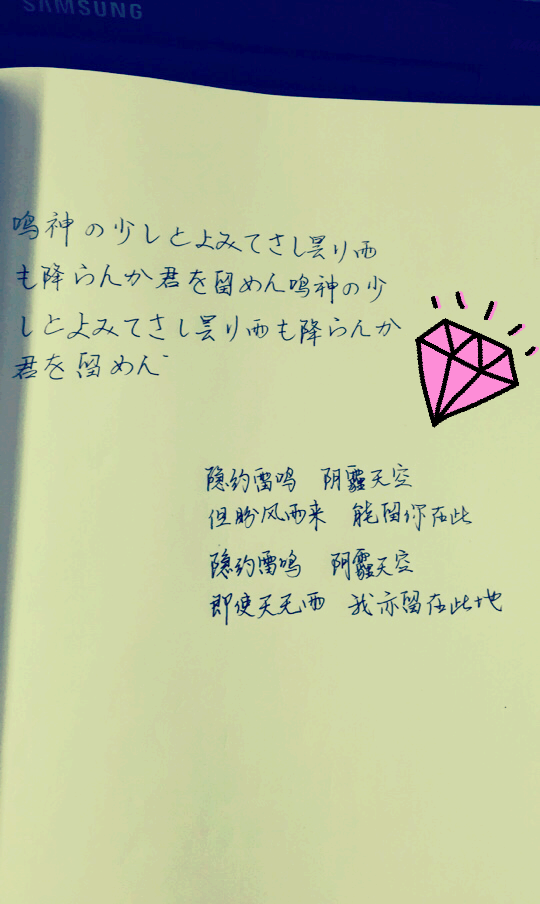 SAMSUNG
鳴神の少しとよみてさし曇り雨
も降らんか君を留めん鳴神の少
しとよみてさし曇り雨も降らんか
君を留めん
隐约雷鸣 阴霾天空
但盼风雨来 能留你在此
隐约雷鸣 阴霾天空
即使天无雨 我亦留在此地